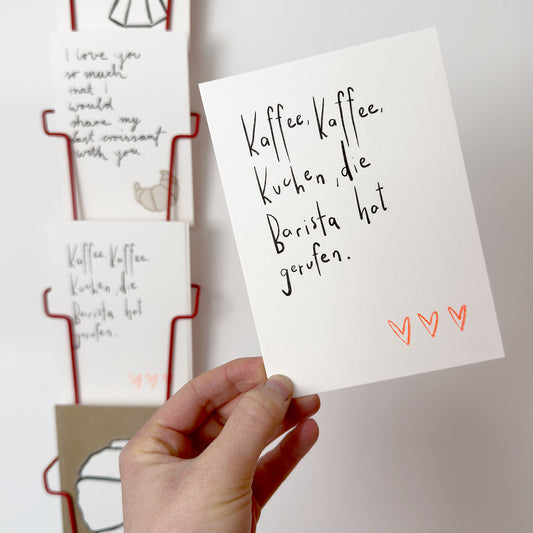 I love you
so much
that I
would
share my
last croissant
with you.
Kaffee, Kaffee,
Kuchen, die
Barista hat
gerufen.
Kaffee, Kaffee,
Kuchen, die
Barista hat
gerufen.